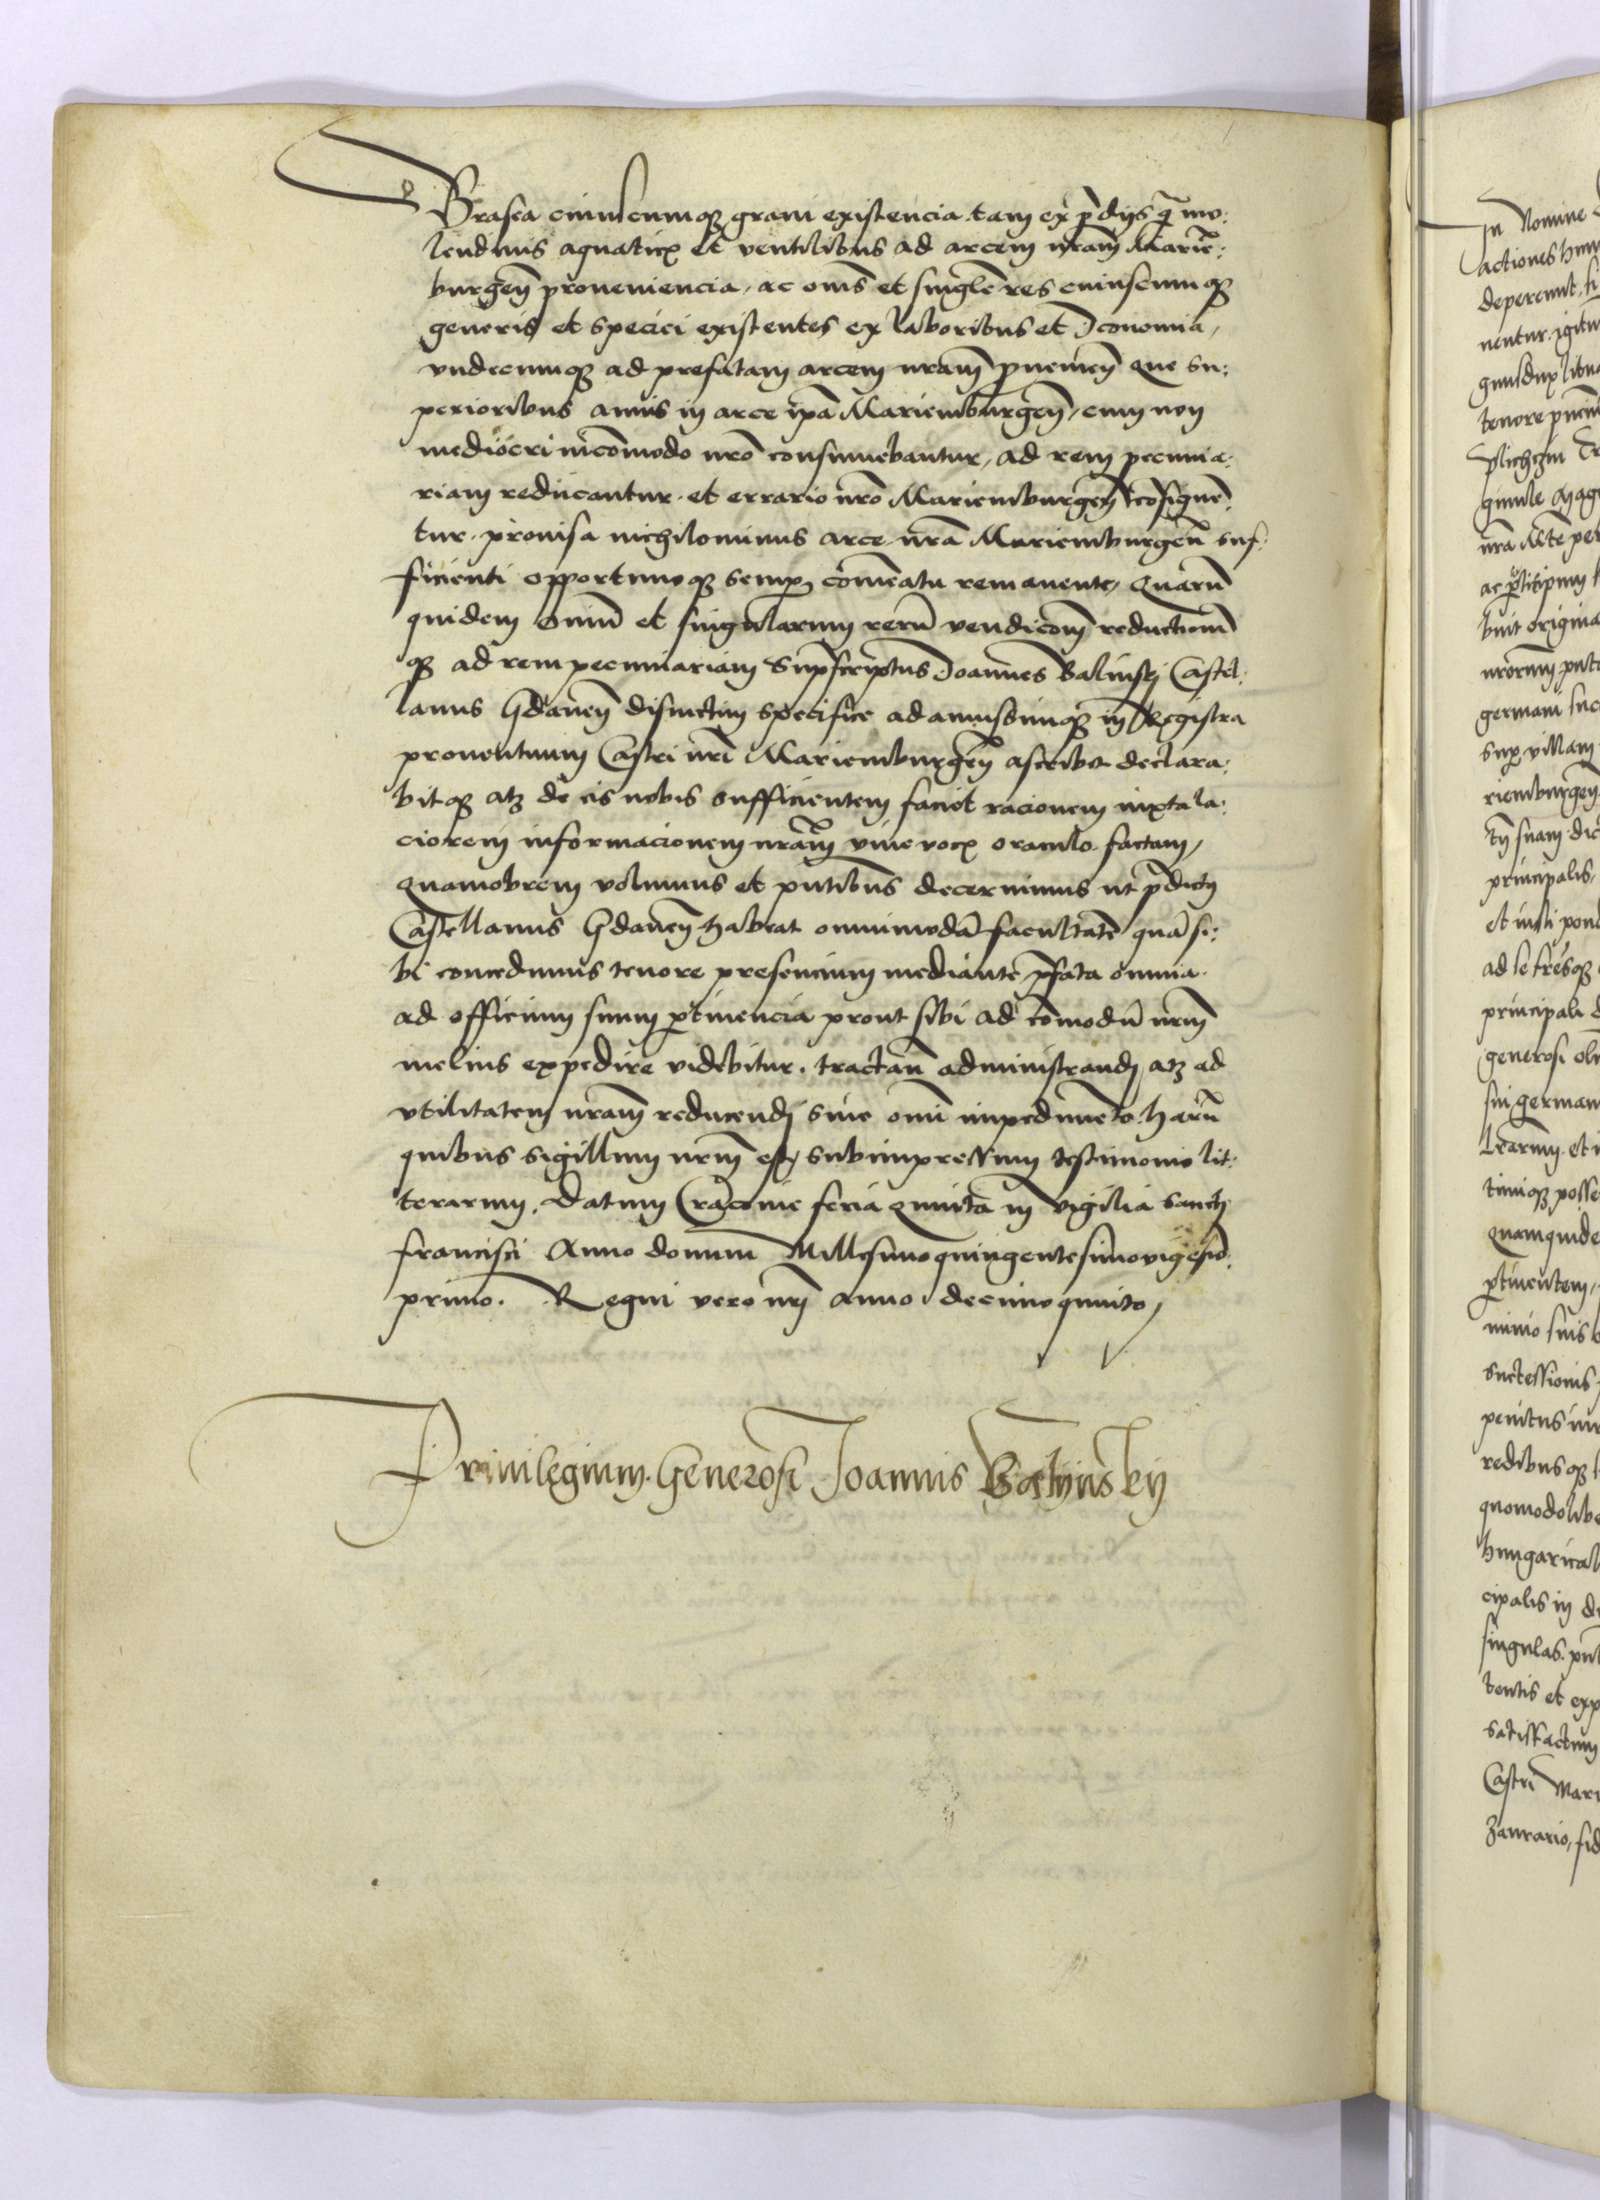 Brasea cuiuscumqȝ grani existencia tam ex p̄dijs q̃ mo:
lendinis aquaticꝭ et ventilibus ad arcem nr̄am Marie͂:
burgen̄ proueniencia, ac om̄s et singl̄e res cuiuscumqȝ
generis et speciei existentes ex laboribus et Iconomia,
vndecumqȝ ad prefatam arcem nr̄am ꝓuenien̄ que su:
perioribus annis in arce ip̄a Mariemburgen̄, cum non
mediocri incōmodo nr̄o consumebantur, ad rem pecunia:
riam reducantur et errario nr̄o Mariemburgen̄ cōsignē:
tur, prouisa nichilominus arce nr̄a Mariemburgen̄ suf:
ficienti opportunoqȝ semꝑ cōmeatu remanente, Quarū
quidem om̄iū et singularum rerū vendic̄om̄ reductionē
qȝ ad rem pecuniariam Supscriptus Ioannes Balinskj Castel:
lanus Gdanen̄ distinctim specifice adamussimqȝ in Registra
prouentuum Castri nr̄i Mariemburgen̄ ascribet declara:
bitqȝ atqȝ de eis nobis sufficientem faciet racionem iuxta la:
ciorem informacionem nr̄am viue vocꝭ oraculo factam,
Quamobrem volumus et pn̄tibus decernimus ut p̄dictus
Castellanus Gdanen̄ habeat omnimodā facultatē quā si:
bi concedimus tenore presencium mediante p̄fata omnia
ad officium suum ꝑtinencia prout sibi ad cōmodū nr̄m
melius expedire videbitur, tractan̄ administrandj atqȝ ad
vtilitatem nr̄am reducendj sine om̄i impedimēto harū
quibus sigillum nr̄m est subimpressum testimonio lit:
terarum, Datum Cracouie feria quinta in vigilia sancti
francisci Anno domini Millesimoquingentesimovigesīo
primo. Regni vero nr̄i anno decimoquinto,
Priuilegium Generosi Ioannis Balynskÿ
In Nomine
actiones hum
depereunt, si
nentur, igitur
tenore pn̄ciū
gimile Mag
nr̄a Mte per
ac ꝑticipium
buit origina
germani suc
suꝑ villam
riemburgen̄
principalis,
et iusti pond
principali d
generosi ol
sui german
timiqȝ posse
Quamquide
ꝑtinentem,
minio suis
successionis
penitus iur
redibusqȝ
quomodolibe
hungarical
cipalis in d
singulas pn̄t
tentis et exp
satisfactum
Castri Mari
Zanrario, fid